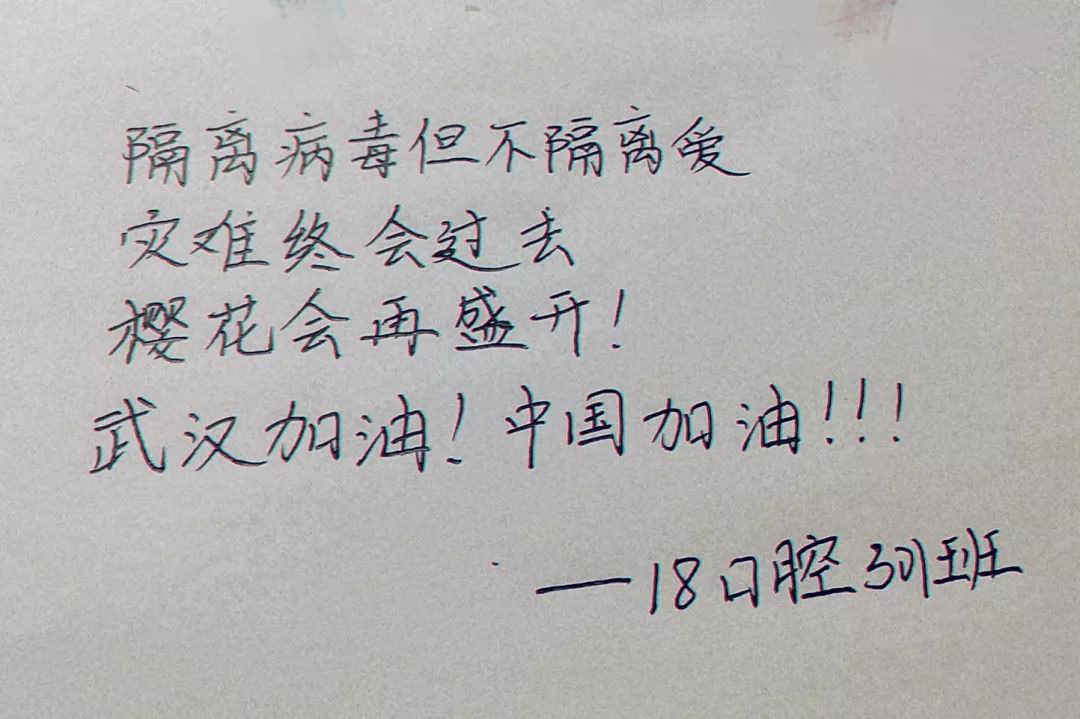 隔离病毒但不隔离爱
灾难终会过去
樱花会再盛开!
武汉加油!中国加油!!!
—18口腔301班